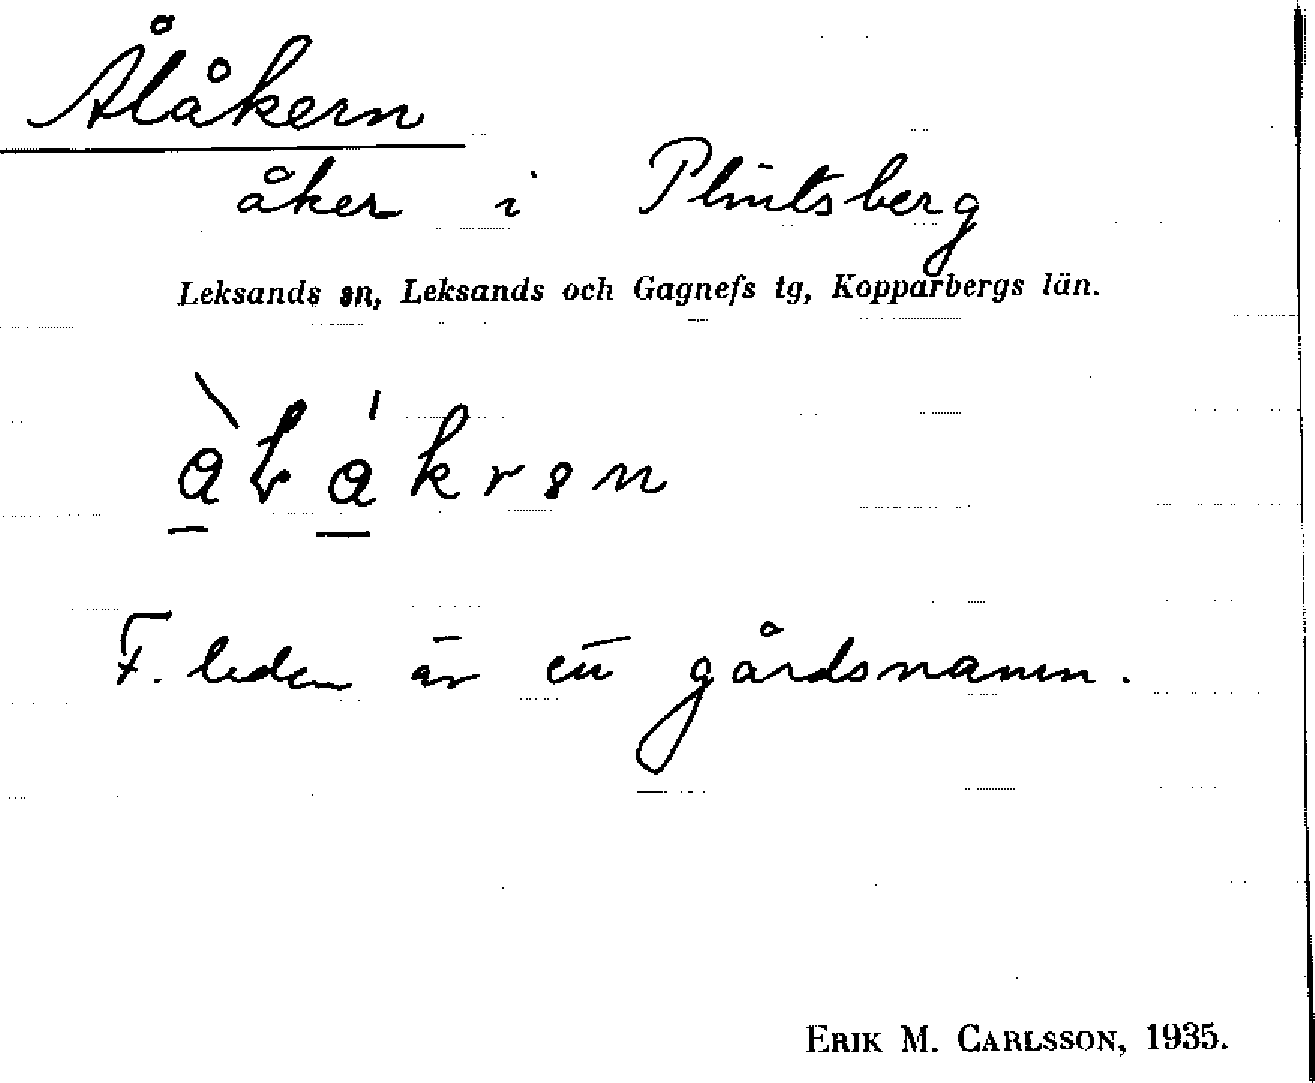 Ålåkern
åker i Plintsberg
Leksands sn, Leksands och Gagnefs tg, Kopparbergs län.
F. leden är ett gårdsnamn.
ERIK M. CARLSSON, 1935.